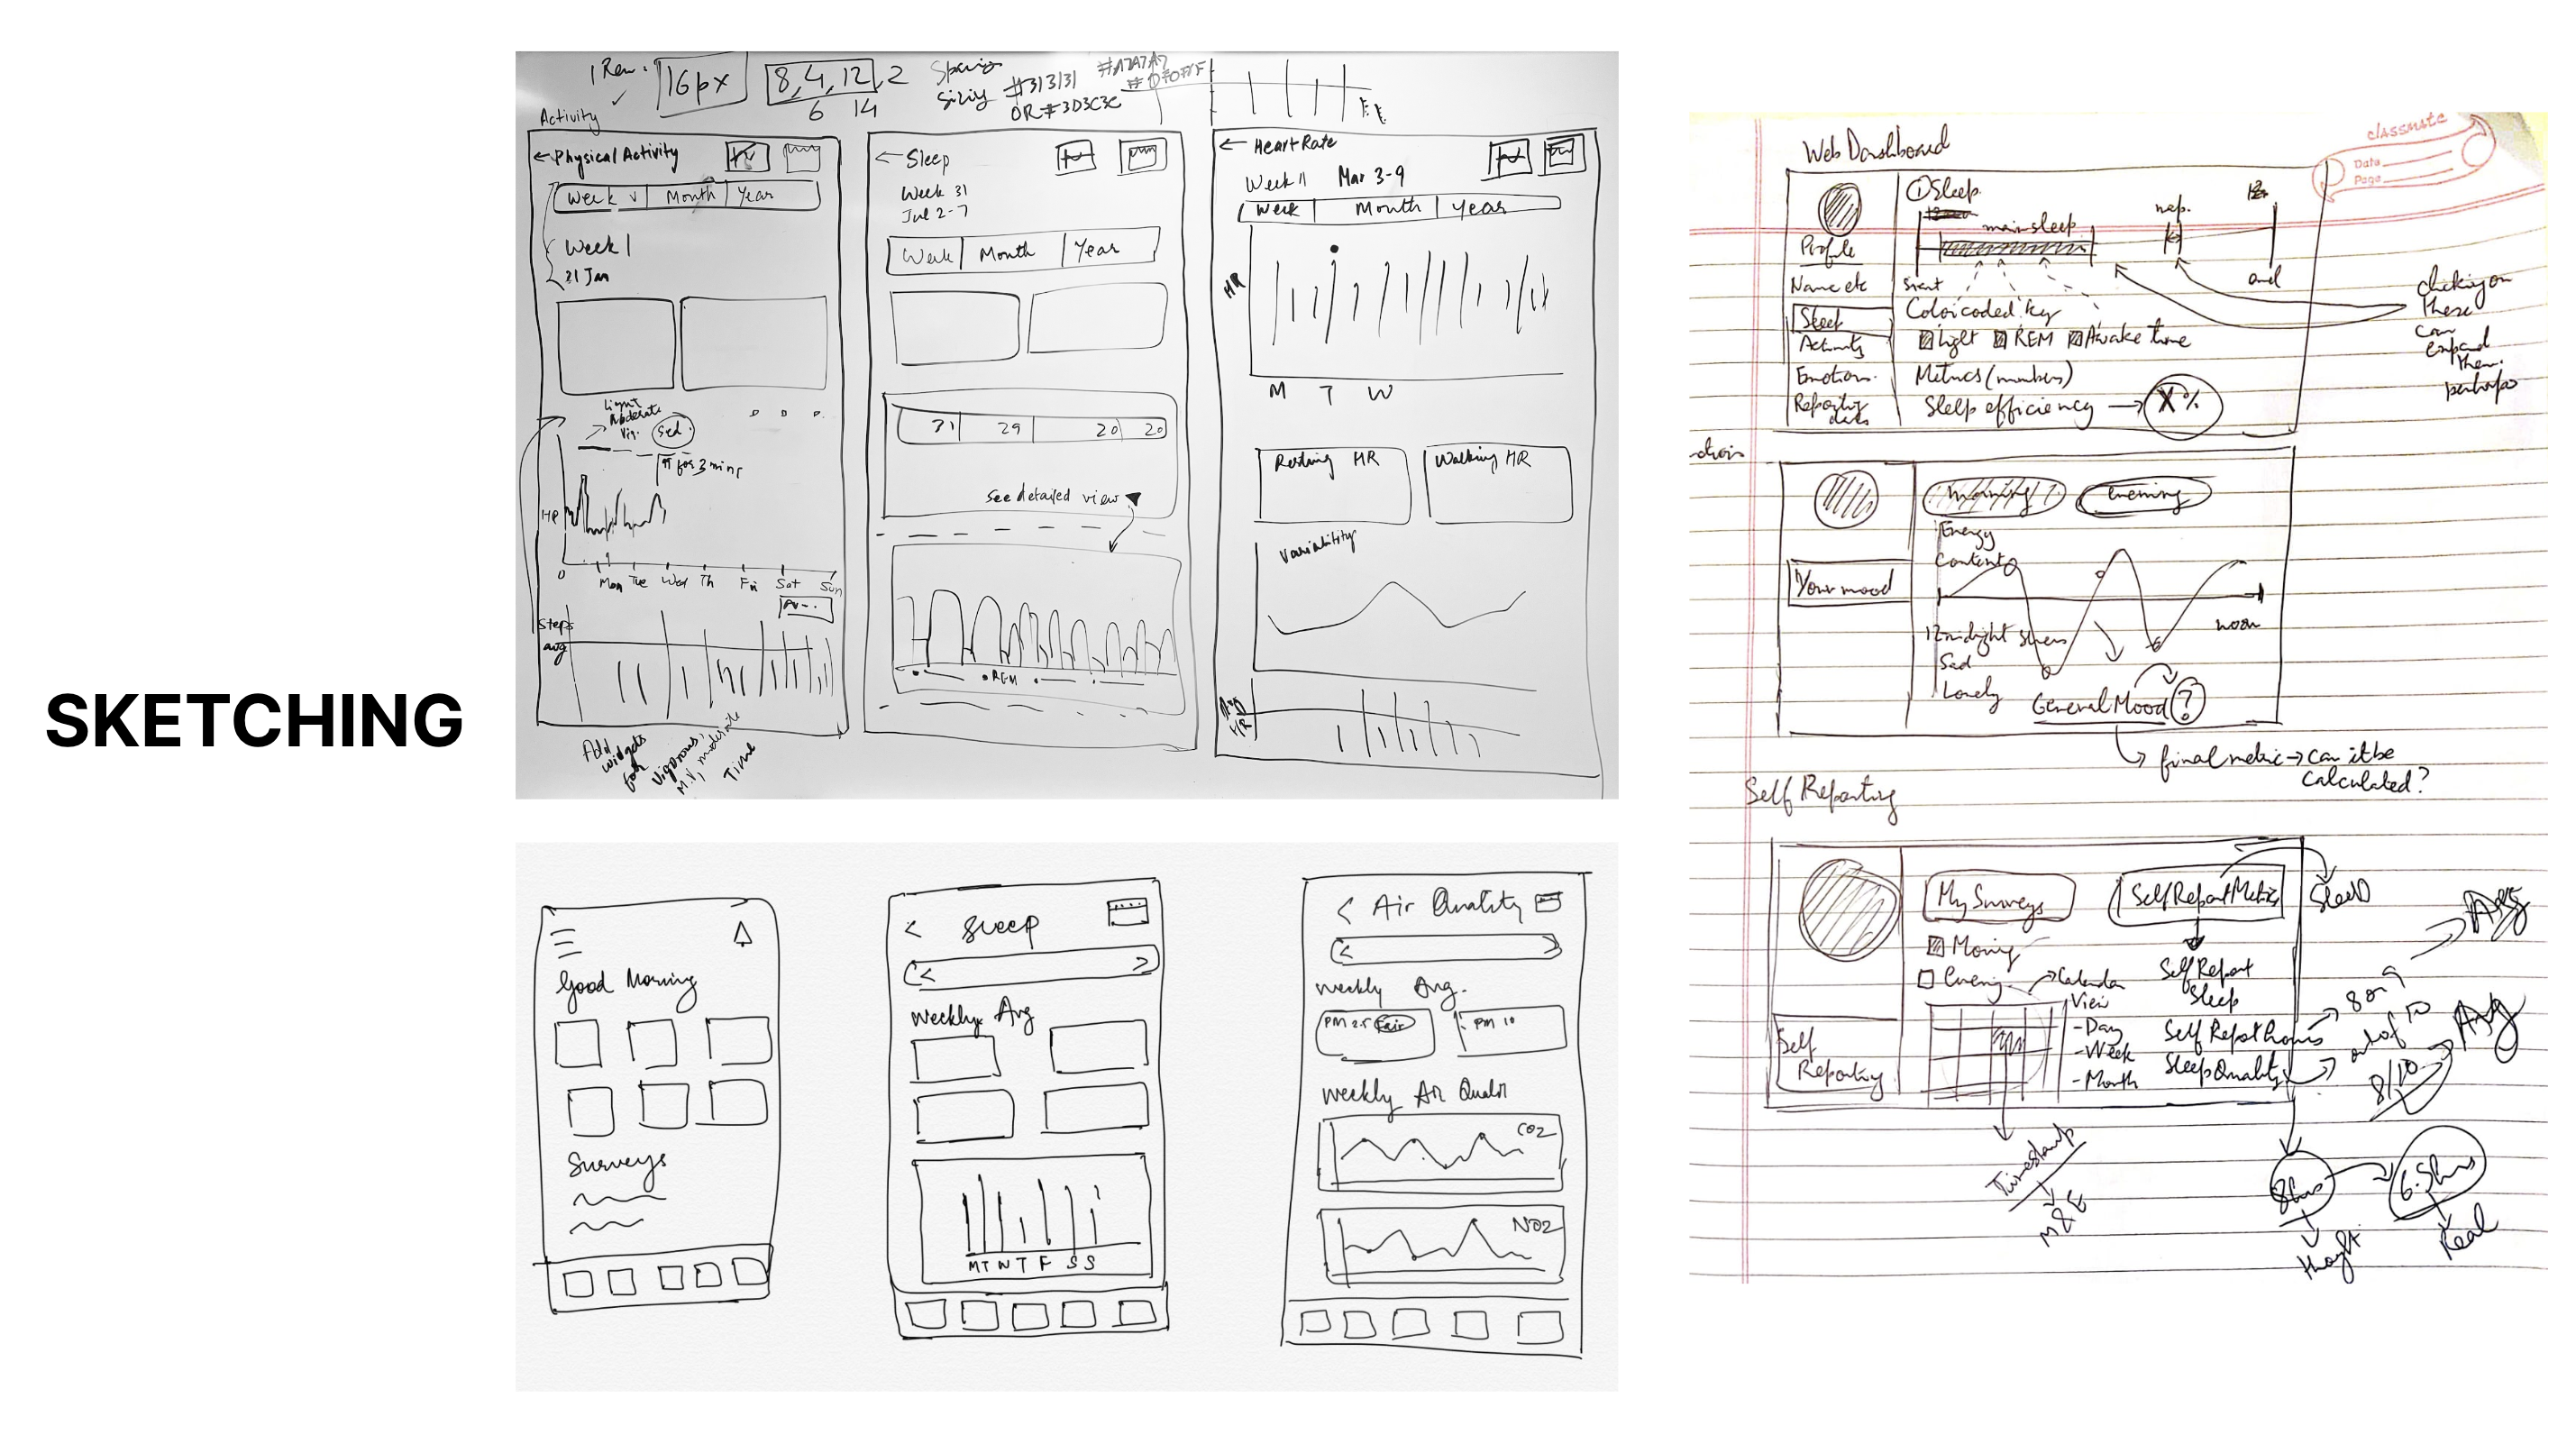 SKETCHING
1 Rem.
16px
8, 4, 12, 2
6 14
Spacing
Sizing
#313131
OR #3D3C3C
#A7A7A7
Activity
← Physical Activity
Week v Month Year
Week 1
31 Jan
Light
Moderate
Vig.
Sed.
for 3 mins
HR
0
Mon Tue Wed Th Fri Sat Sun
Steps
avg
Add
widgets
for
Vigorous,
M.V, moderate
Time
← Sleep
Week 31
Jul 2-7
Week Month Year
31 29 20 20
See detailed view
REM
← Heart Rate
Week 11 Mar 3-9
Week Month Year
HR
M T W
Resting HR
Walking HR
Variability
Avg
HR
Good Morning
Surveys
< Sleep
< >
Weekly Avg
M T W T F S S
< Air Quality
< >
Weekly Avg.
PM 2.5 Fair
PM 10
Weekly Air Qualit
CO2
NO2
classmate
Date
Page
Web Dashboard
Profile
Name etc
Sleep
Activity
Emotion.
Reporting
① Sleep
main sleep
nap.
start
end
Color coded key
Light REM Awake time
Metrics (numbers)
Sleep efficiency → X%
clicking on
these
can
expand
them
perhaps
ction
morning
evening
Energy
Content
Your mood
12 midnight
Stress
noon
Sad
Lonely
General Mood ?
final metric → can it be
calculated?
Self Reporting
My Surveys
Self Report Metrics
Sleep
Calendar
View
-Day
-Week
-Month
Self Report
Sleep
Self Report hours
Sleep Quality
Self
Reporting
8 or 9
out of 10
8/10
Avg
Avg
Timestamp
M & E
8hrs
6.5hrs
Real